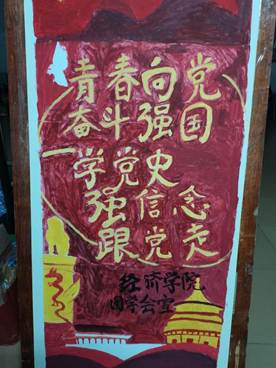 青春向党
奋斗强国
学党史
强信念
跟党走
经济学院
团学会宣